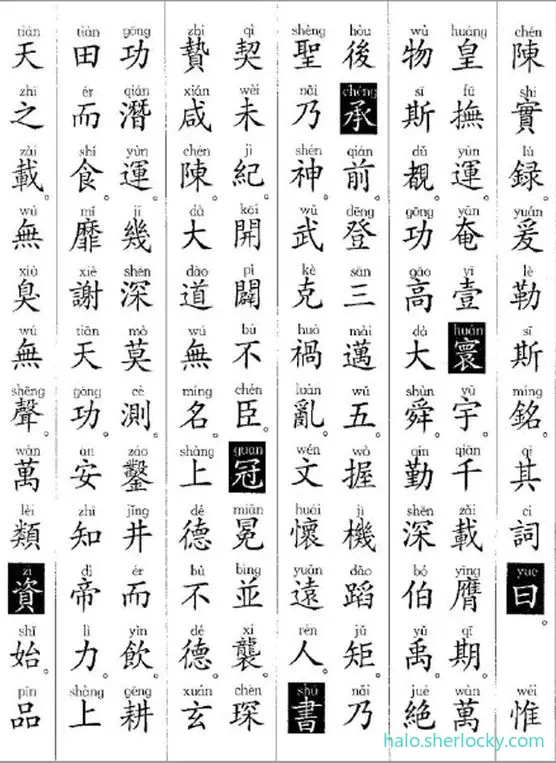 chén shí lù yuán lè sī míng qí cí yuē wéi
陳實録。爰勒斯銘。其詞曰。惟
huáng fǔ yùn yǎn yī huán yǔ qiān zǎi yīng qī wàn
皇撫運。奄壹寰宇。千載膺期。萬
wù sī dǔ gōng gāo dà shùn qín shēn bó yǔ jué
物斯覩。功高大舜。勤深伯禹。絕
hòu chéng qián dēng sān mài wǔ wò jī dǎo jǔ nǎi
後承前。登三邁五。握機蹈矩。乃
shèng nǎi shén wǔ kè huò luàn wén huái yuǎn rén shū
聖乃神。武克禍亂。文懷遠人。書
qì wèi jì kāi pì bù chén guān miǎn bìng xí chēn
契未紀。開闢不臣。冠冕並襲。琛
zhì xián chén dà dào wú míng shàng dé bù dé xuán
贄咸陳。大道無名。上德不德。玄
gōng qián yùn jī shēn mò cè záo jǐng ér yǐn gēng
功潛運。幾深莫測。鑿井而飲。耕
tián ér shí mǐ xiè tiān gōng ān zhī dì lì shàng
田而食。靡謝天功。安知帝力。上
tiān zhī zài wú xiù wú shēng wàn lèi zī shǐ pǐn
天之載。無臭無聲。萬類資始。品
halo.sherlocky.com